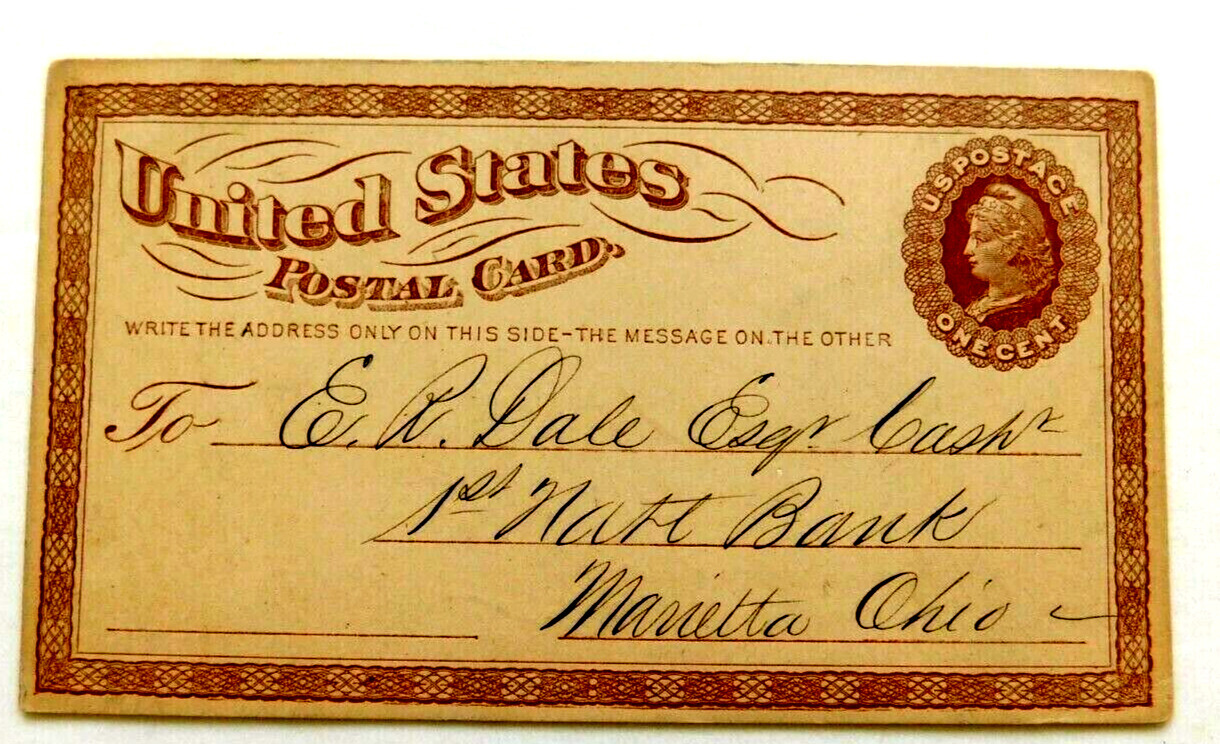 United States
POSTAL CARD.
U S POSTAGE
ONE CENT
WRITE THE ADDRESS ONLY ON THIS SIDE-THE MESSAGE ON THE OTHER
To E. R. Dale Esqr Cashr
1st Natl Bank
Marietta Ohio